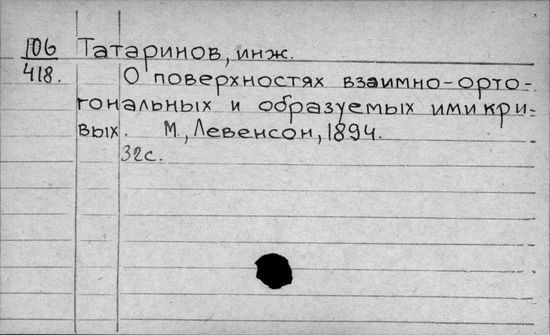 106 Татаринов, инж.
418. О поверхностях взаимно-орто-
гональных и образуемых ими кри-
вых. М., Левенсон, 1894.
32с.